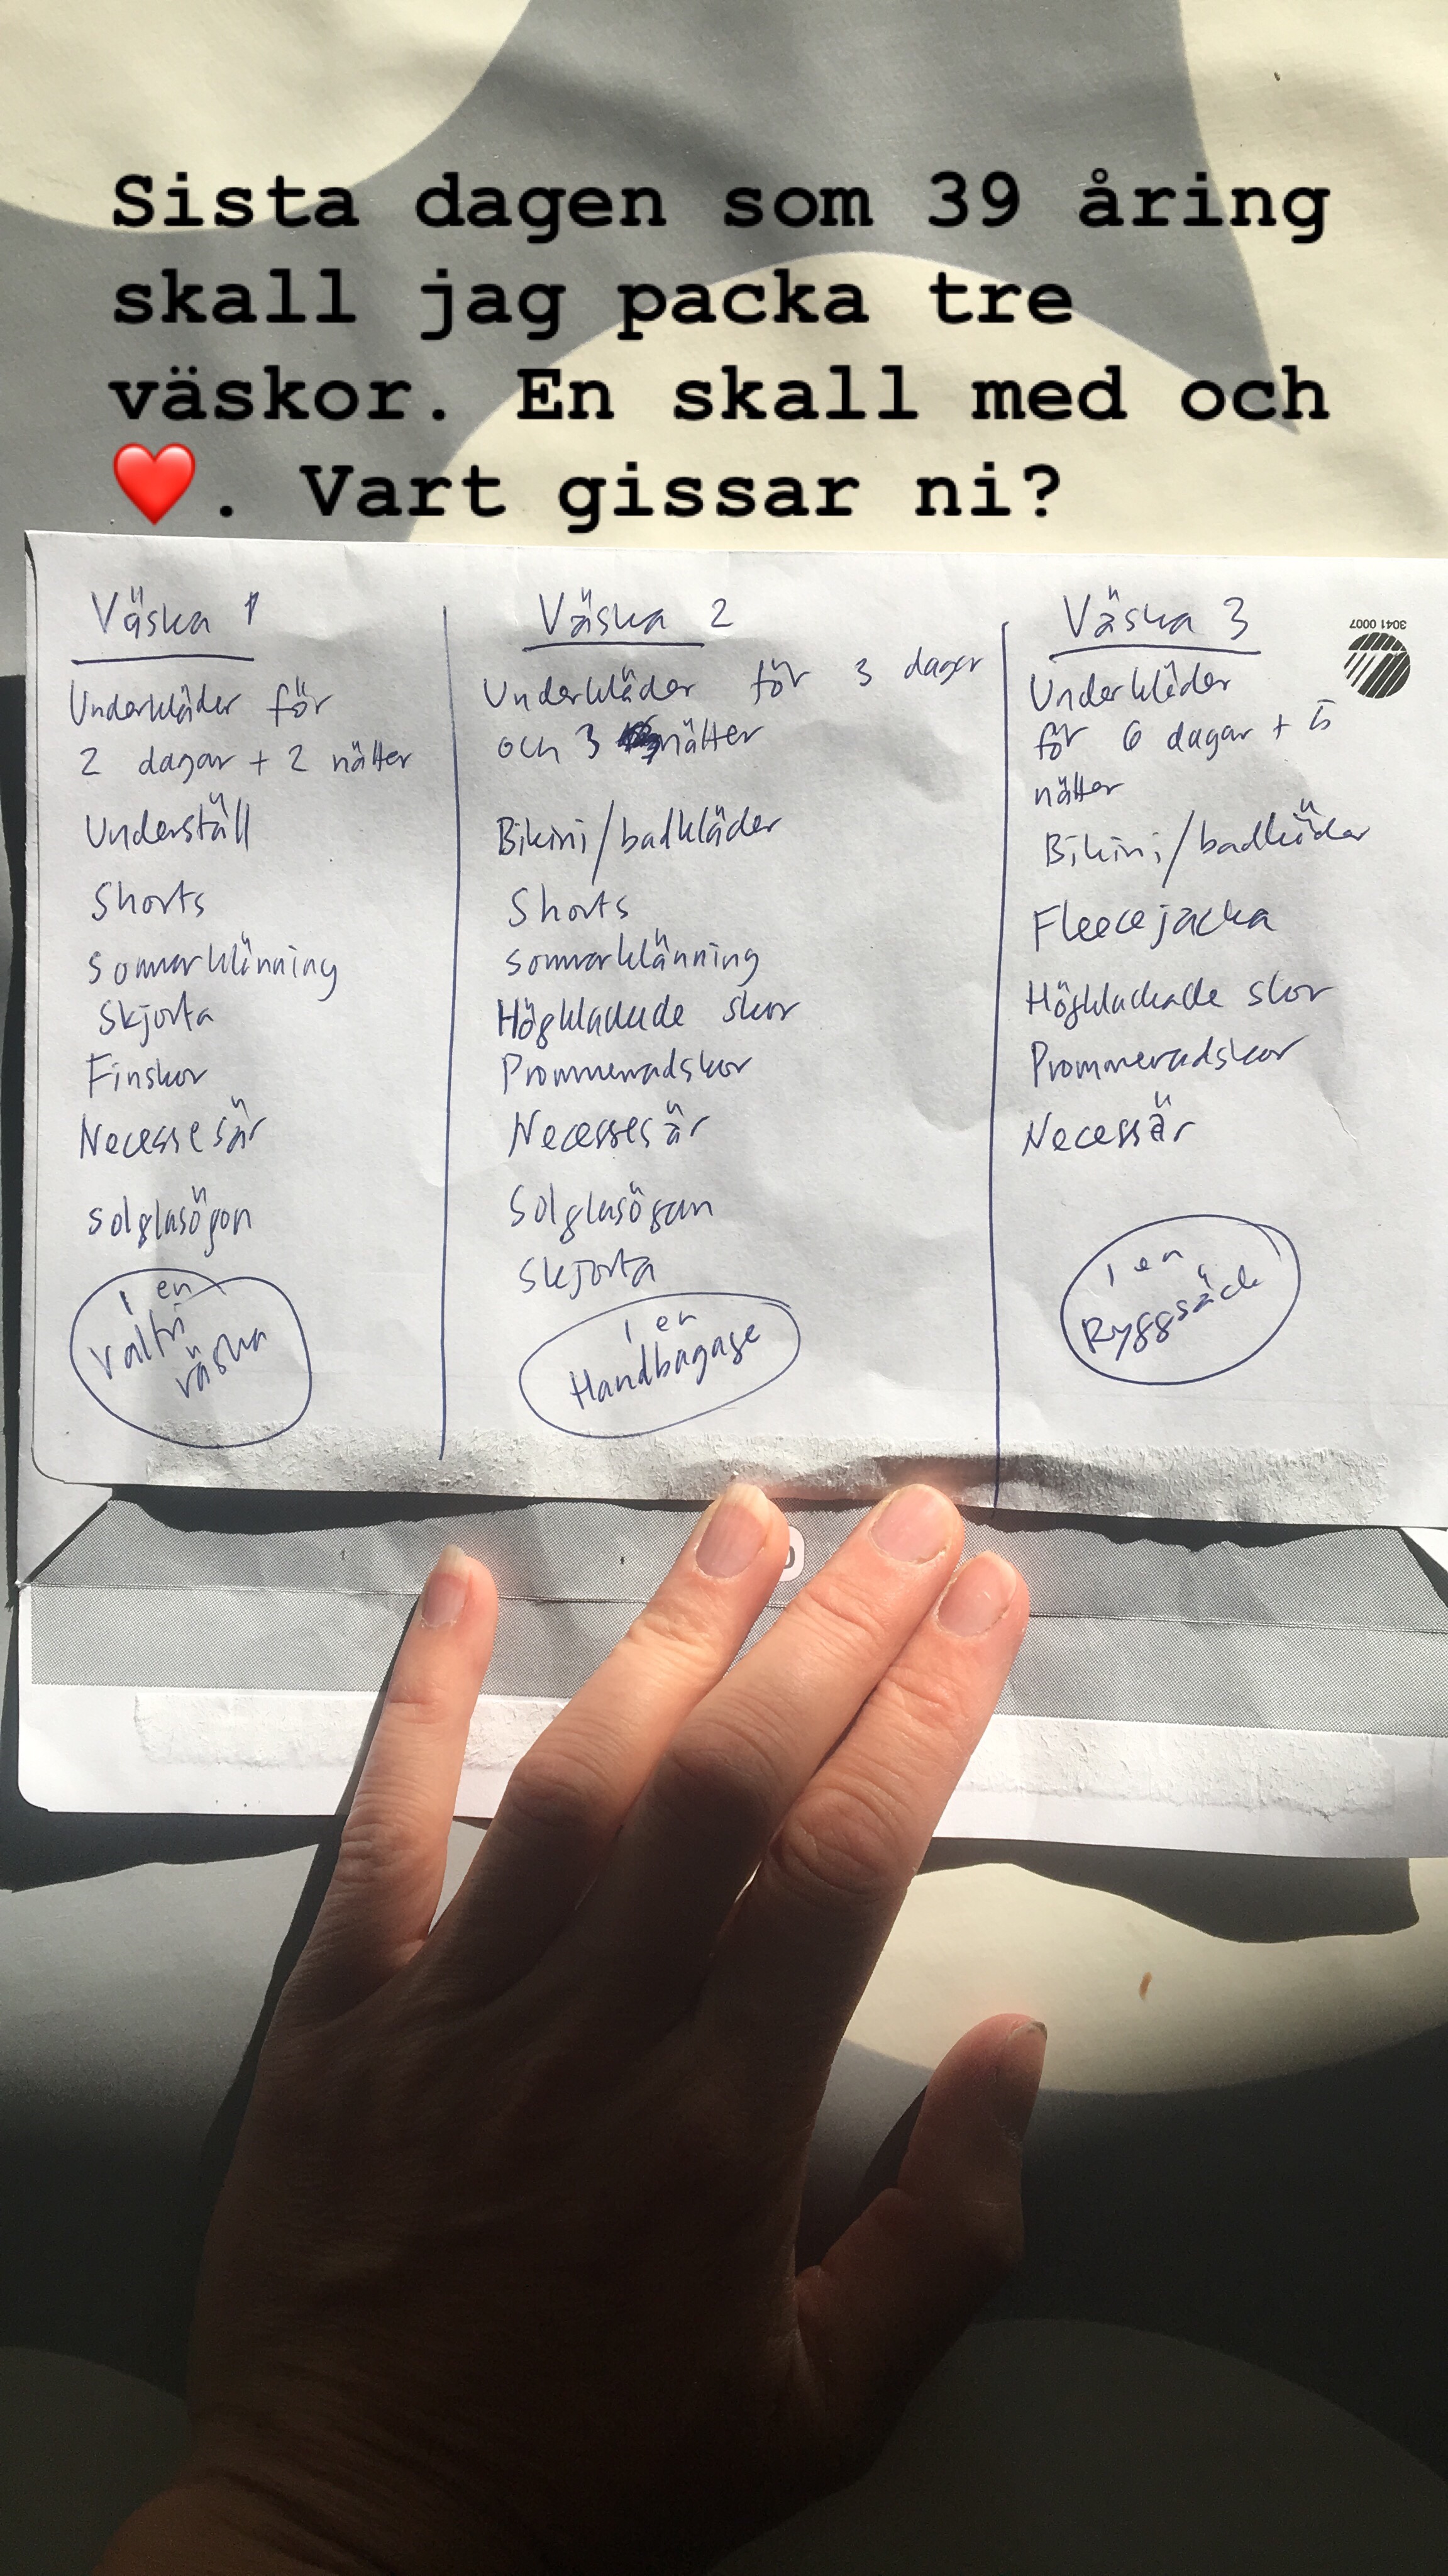 Sista dagen som 39 åring
skall jag packa tre
väskor. En skall med och
❤️. Vart gissar ni?
Väska 1
Underkläder för
2 dagar + 2 nätter
Underställ
Shorts
Sommarklänning
Skjorta
Finskor
Necessesär
Solglasögon
I en
väska
Väska 2
Underkläder för 3 dagar
och 3 nätter
Bikini/badkläder
Shorts
Sommarklänning
Högklackade skor
Prommenadskor
Necessesär
Solglasögon
Skjorta
I en
Handbagage
Väska 3
Underkläder
för 6 dagar + 5
nätter
Bikini/badkläder
Fleecejacka
Högklackade skor
Prommenadskor
Necessär
I en
Ryggsäck
3041 0007